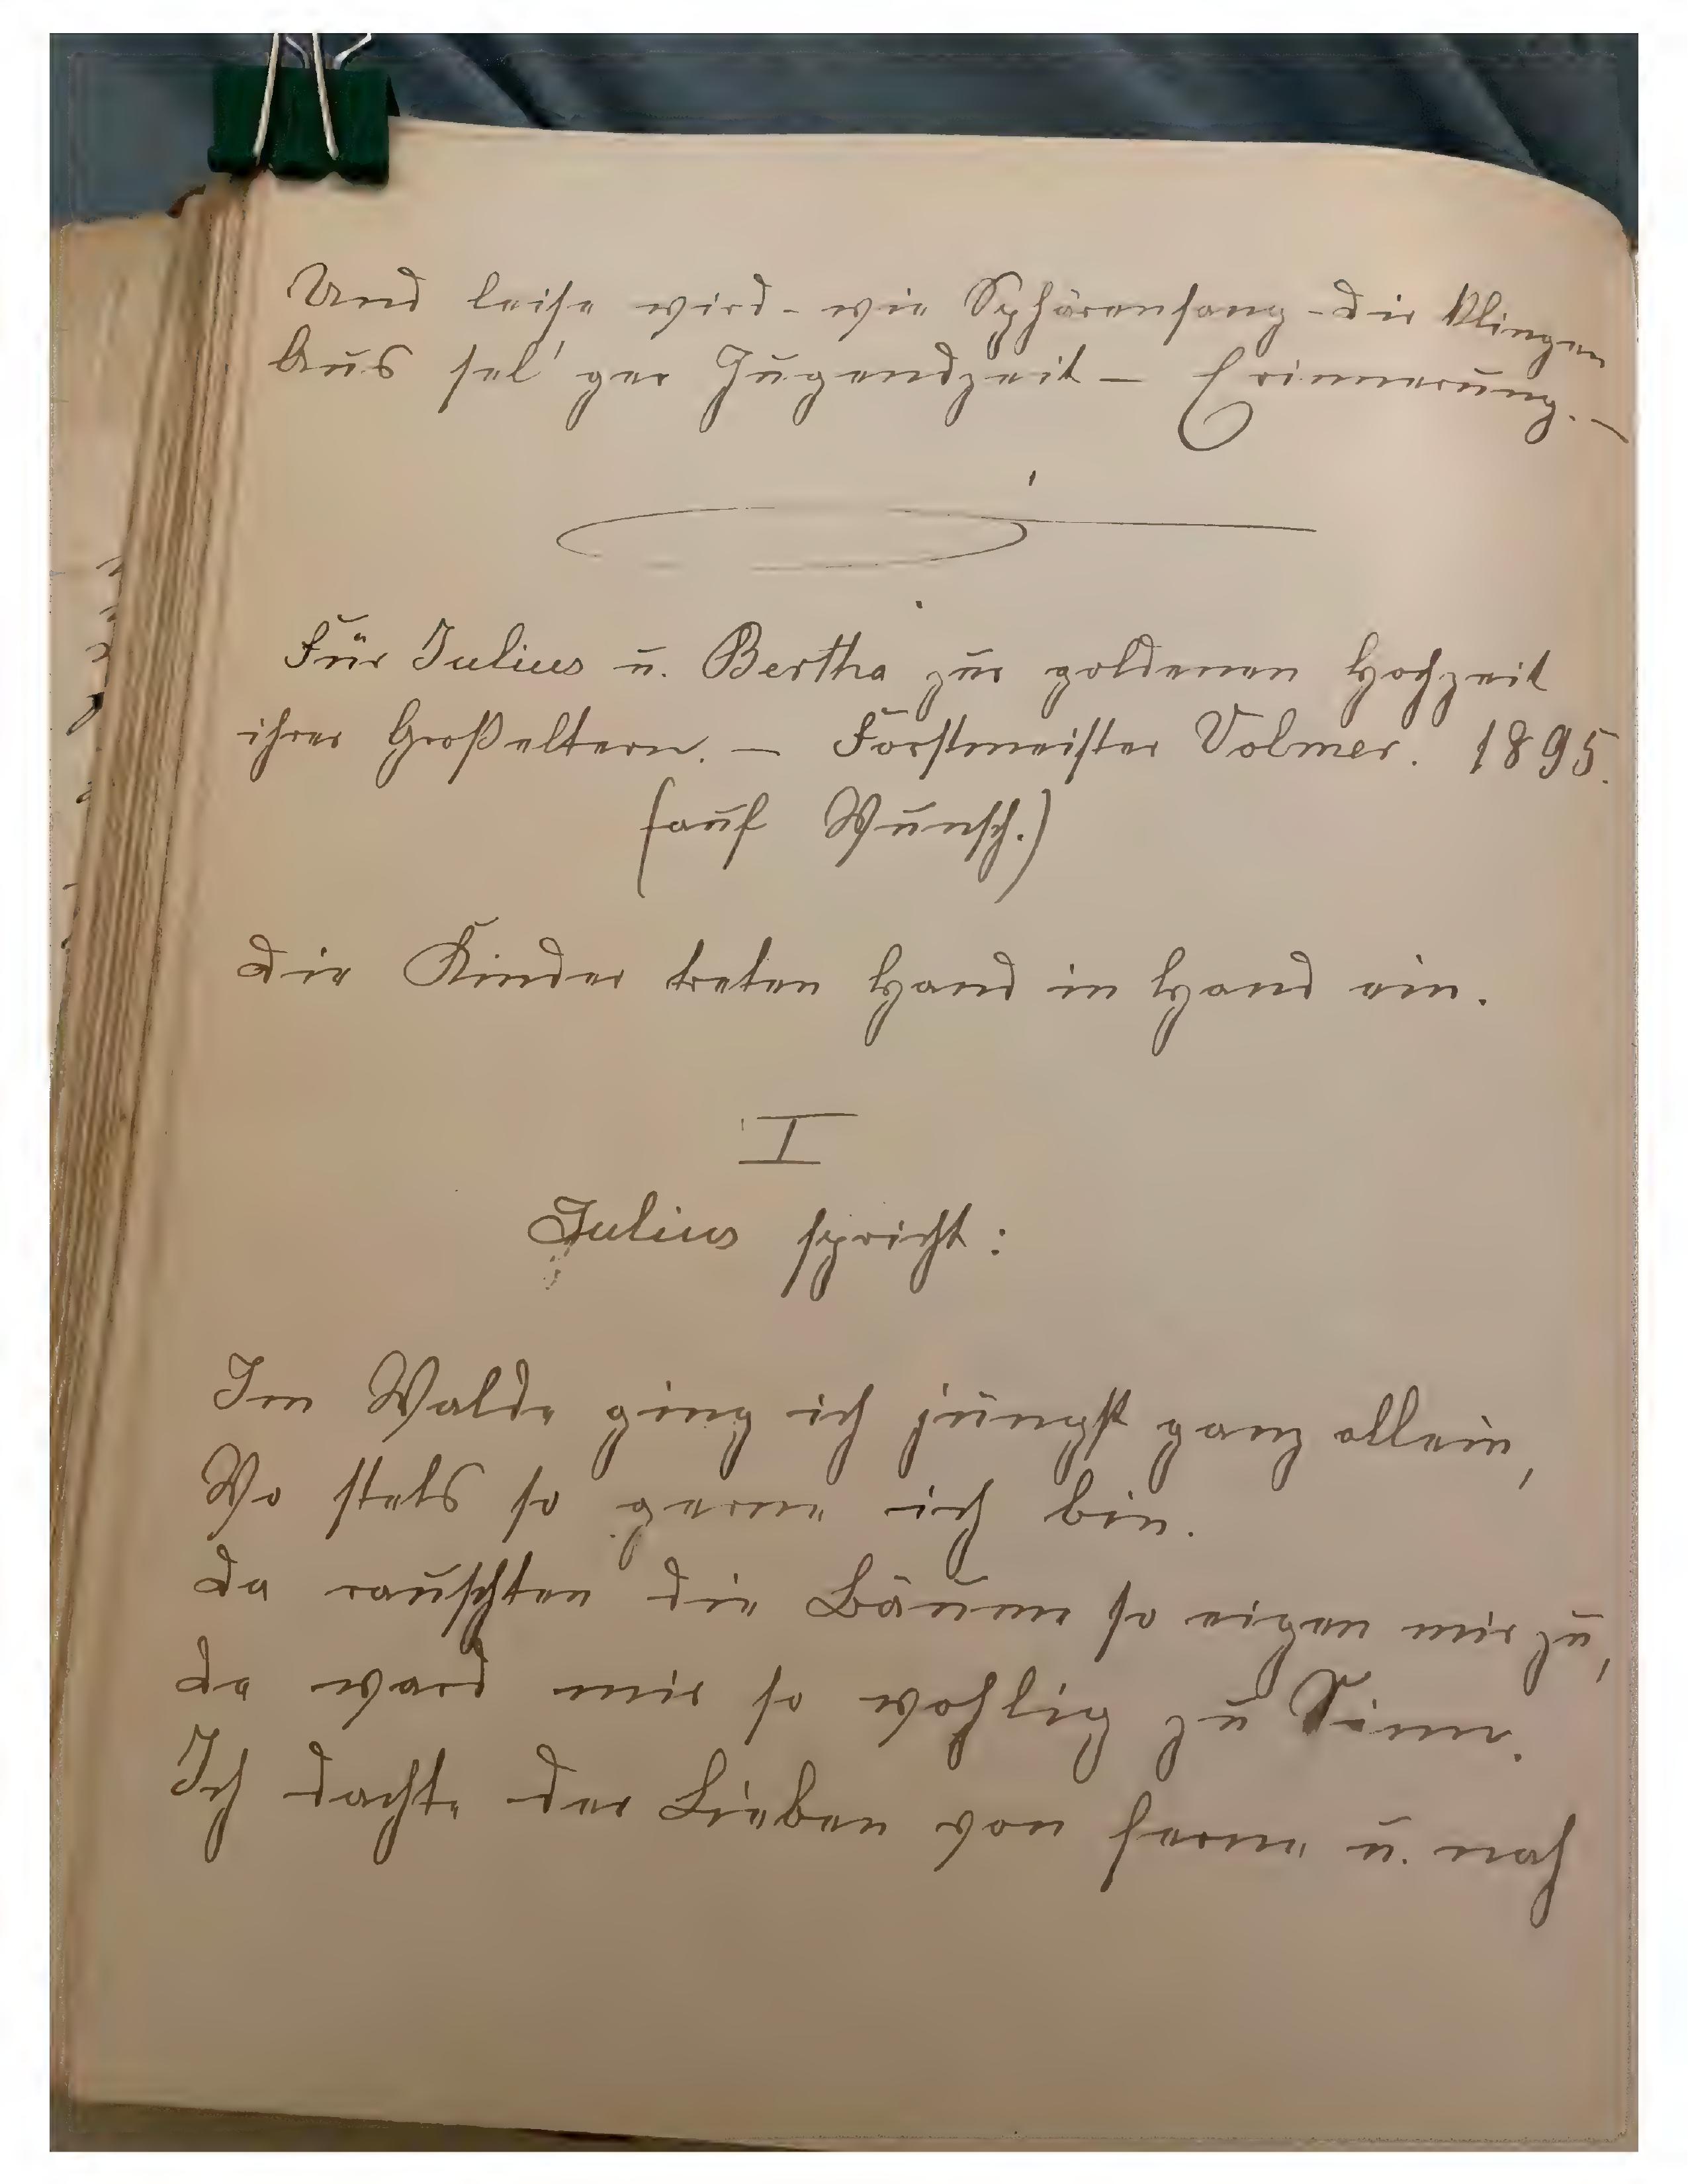 Und leise wird - wie Sphärensang - dir klingen
Aus sel'ger Jugendzeit - Erinnerung. -
Für Julius u. Bertha zur goldenen Hochzeit
ihrer Großeltern. - Forstmeister Volmer. 1895.
(auf Wunsch.)
Die Kinder treten Hand in Hand ein.
I
Julius spricht:
Im Walde ging ich jüngst ganz allein,
Wo stets so gerne ich bin.
Da rauschten die Bäume so eigen mir zu,
Da ward mir so wohlig zu Sinn.
Ich dachte der Lieben von ferne u. nah